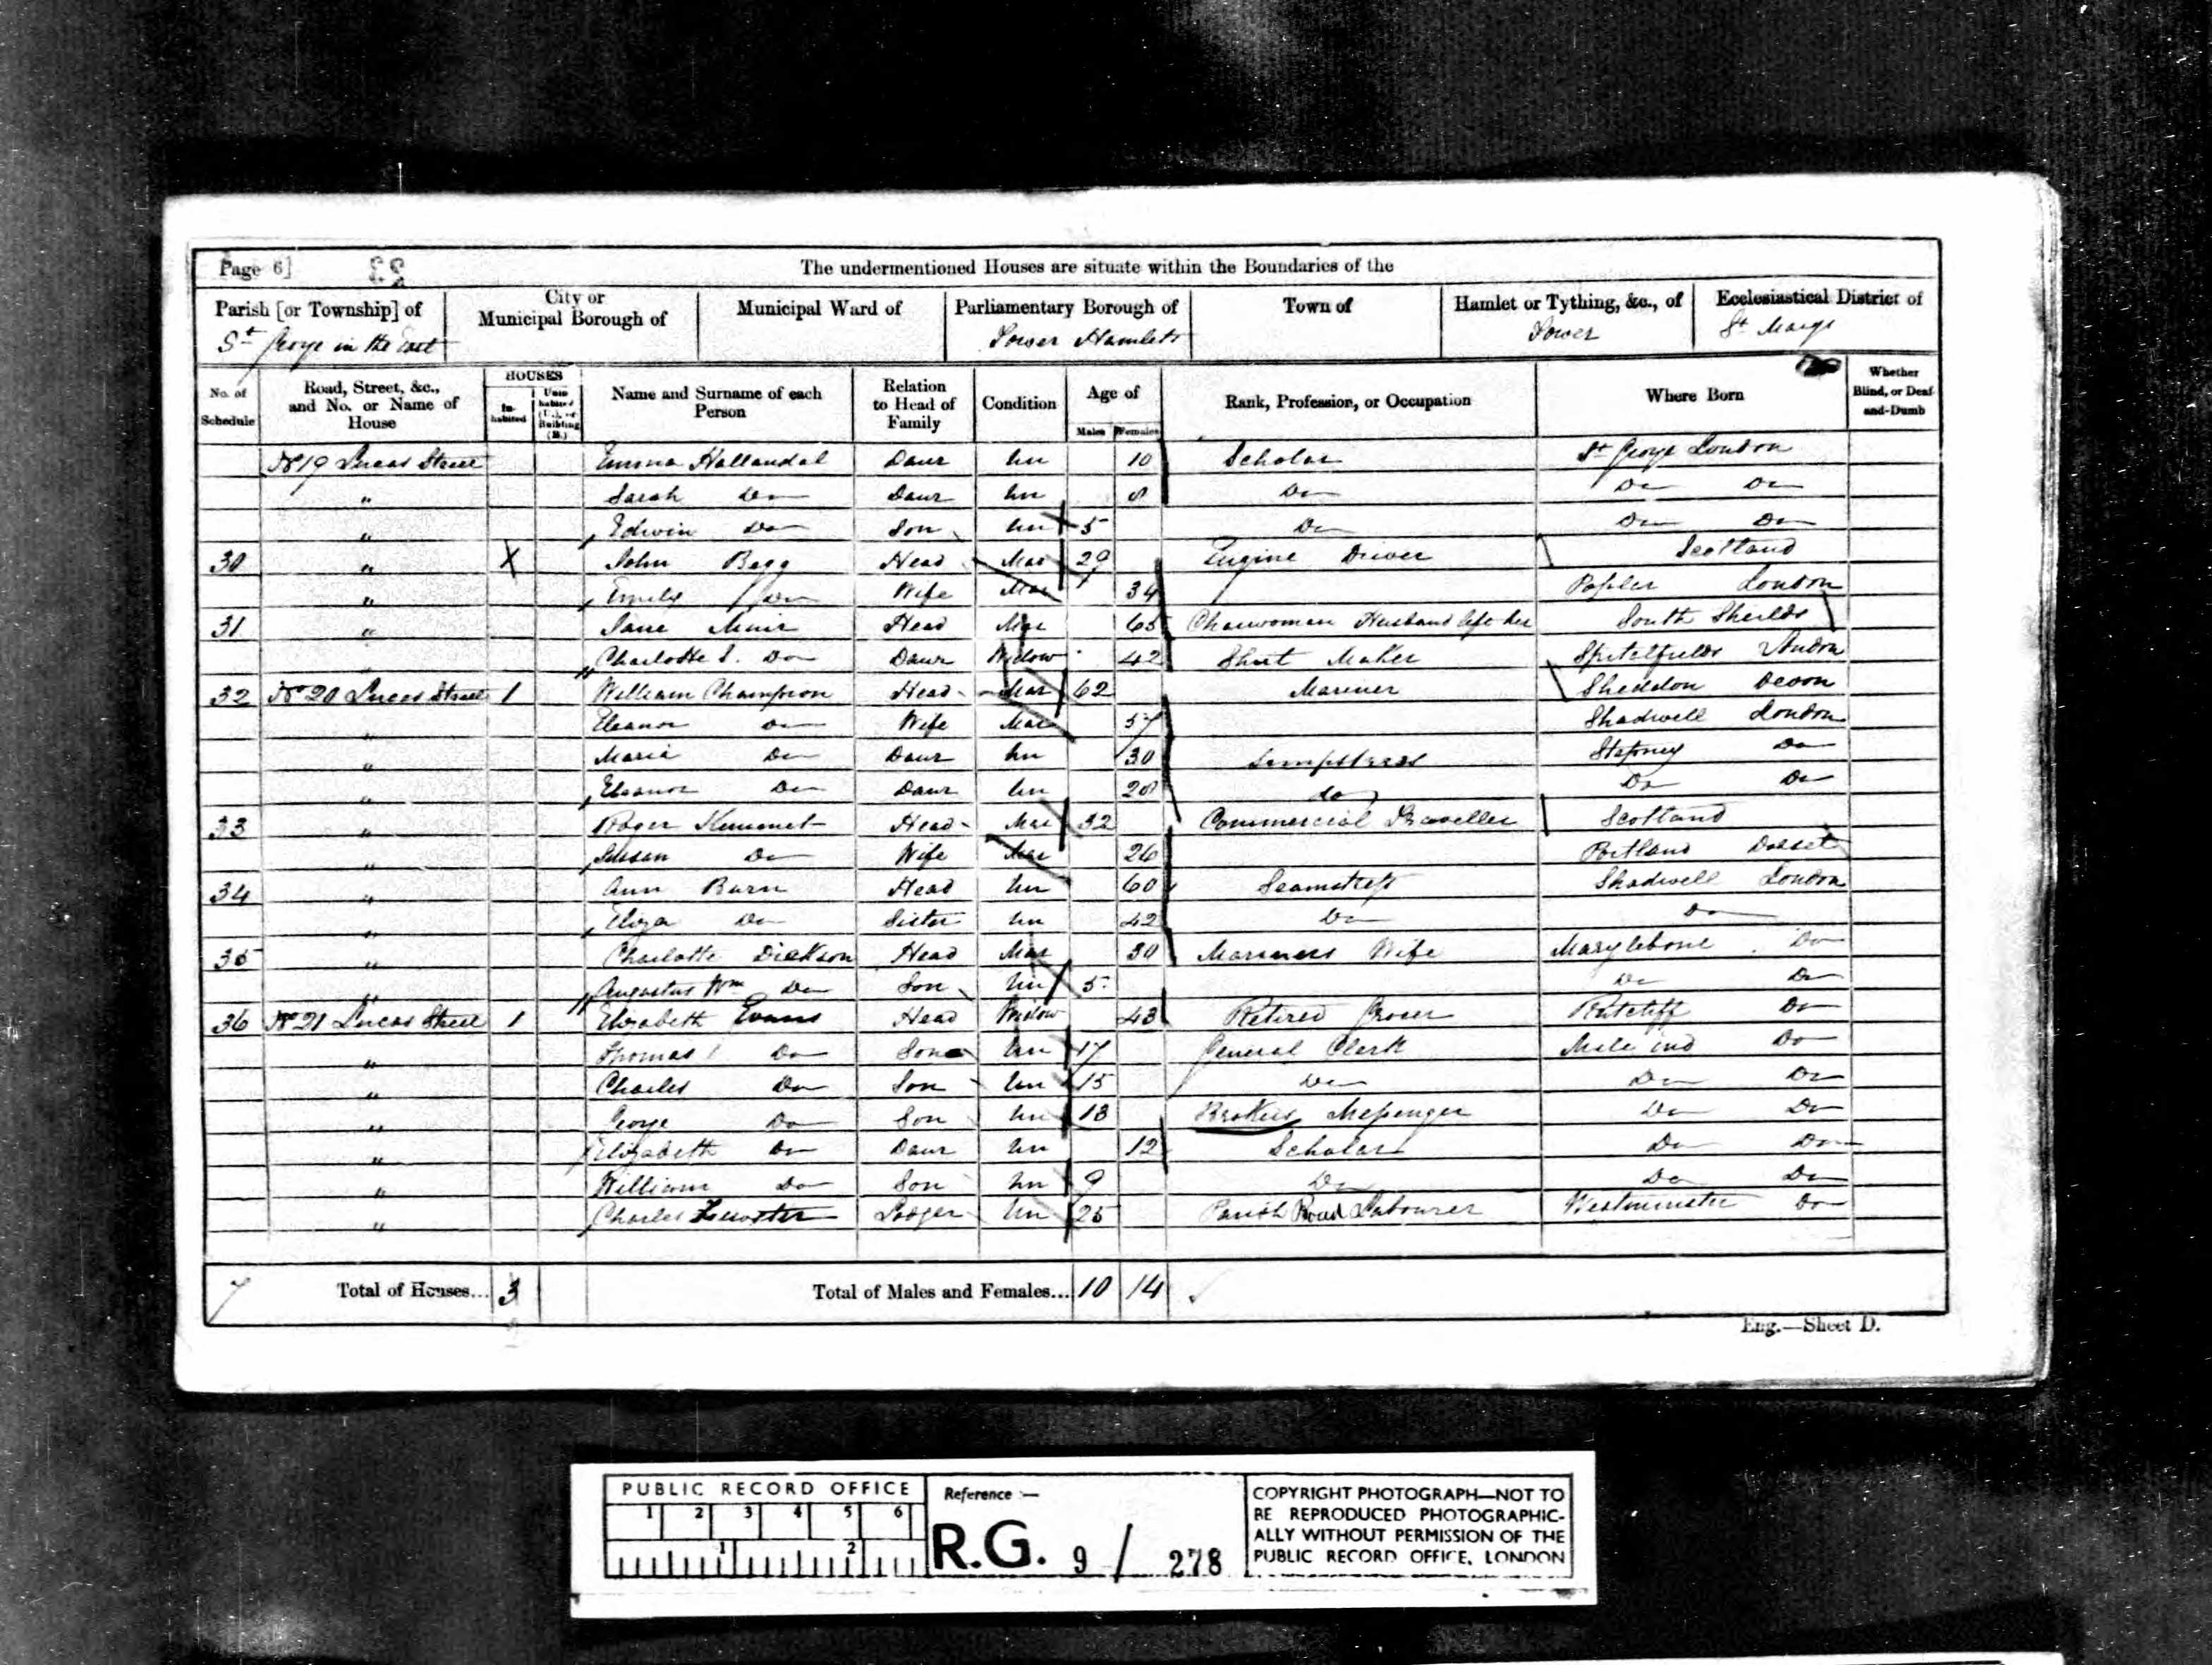 Page 6]
The undermentioned Houses are situate within the Boundaries of the
Parish [or Township] of
St George in the East
City or Municipal Borough of
Municipal Ward of
Parliamentary Borough of
Tower Hamlets
Town of
Hamlet or Tything, &c., of
Tower
Ecclesiastical District of
St Marys
No. of Schedule
Road, Street, &c., and No. or Name of House
HOUSES
In-habited
Unin-habited (U.), or Building (B.)
Name and Surname of each Person
Relation to Head of Family
Condition
Age of
Males Females
Rank, Profession, or Occupation
Where Born
Whether Blind, or Deaf-and-Dumb
No 19 Lucas Street Emma Hallandal Daur Un 10 Scholar St George London
" Sarah Do Daur Un 8 Do Do Do
" Edwin Do Son Un 5 Do Do Do
30 " X John Begg Head Mar 29 Engine Driver Scotland
" Emily Do Wife Mar 34 Popler London
31 " Jane Muir Head Mar 65 Charwoman Husband left her South Sheilds
" Charlotte S. Do Daur Widow 42 Shirt Maker Spitelfields London
32 No 20 Lucas Street 1 William Champion Head Mar 62 Mariner Sheddon Devon
" Eleanor Do Wife Mar 57 Shadwell London
" Maria Do Daur Un 30 Sempstress Stepney Do
" Eleanor Do Daur Un 28 do Do Do
33 " Roger Kemmet Head Mar 32 Commercial Traveller Scotland
" Susan Do Wife Mar 26 Portland Dorset
34 " Ann Burn Head Un 60 Seamstress Shadwell London
" Eliza Do Sister Un 42 Do Do
35 " Charlotte Dickson Head Mar 30 Mariners Wife Marylebone Do
" Augustus Wm Do Son Un 5 Do Do
36 No 21 Lucas Street 1 Elizabeth Evans Head Widow 43 Retired Grocer Ratcliff Do
" Thomas Do Son Un 17 General Clerk Mile end Do
" Charles Do Son Un 15 Do Do Do
" George Do Son Un 13 Brokers Messenger Do Do
" Elizabeth Do Daur Un 12 Scholar Do Do
" William Do Son Un 9 Do Do Do
" Charles Lodger Un 25 Parish Road Labourer Westminster Do
Total of Houses... 3 Total of Males and Females... 10 14
Eng.—Sheet D.
PUBLIC RECORD OFFICE
1 2 3 4 5 6
1 2
Reference :—
R.G. 9 / 278
COPYRIGHT PHOTOGRAPH—NOT TO
BE REPRODUCED PHOTOGRAPHIC-
ALLY WITHOUT PERMISSION OF THE
PUBLIC RECORD OFFICE, LONDON